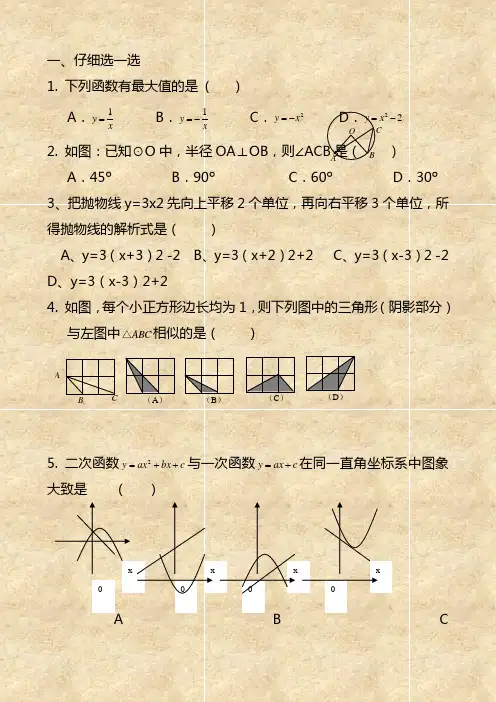 一、仔细选一选
1. 下列函数有最大值的是（ ）
A．y=1/x B．y=-1/x C．y=-x² D．y=x²-2
2. 如图：已知⊙O中，半径OA⊥OB，则∠ACB是（ ）
O C A B
A．45º B．90º C．60º D．30º
3、把抛物线y=3x2先向上平移2个单位，再向右平移3个单位，所
得抛物线的解析式是（ ）
A、y=3（x+3）2 -2 B、y=3（x+2）2+2 C、y=3（x-3）2 -2
D、y=3（x-3）2+2
4. 如图，每个小正方形边长均为1，则下列图中的三角形（阴影部分）
与左图中△ABC相似的是（ ）
A
B C （A） （B） （C） （D）
5. 二次函数y=ax²+bx+c与一次函数y=ax+c在同一直角坐标系中图象
大致是 （ ）
x x x x
0 0 0 0
A B C